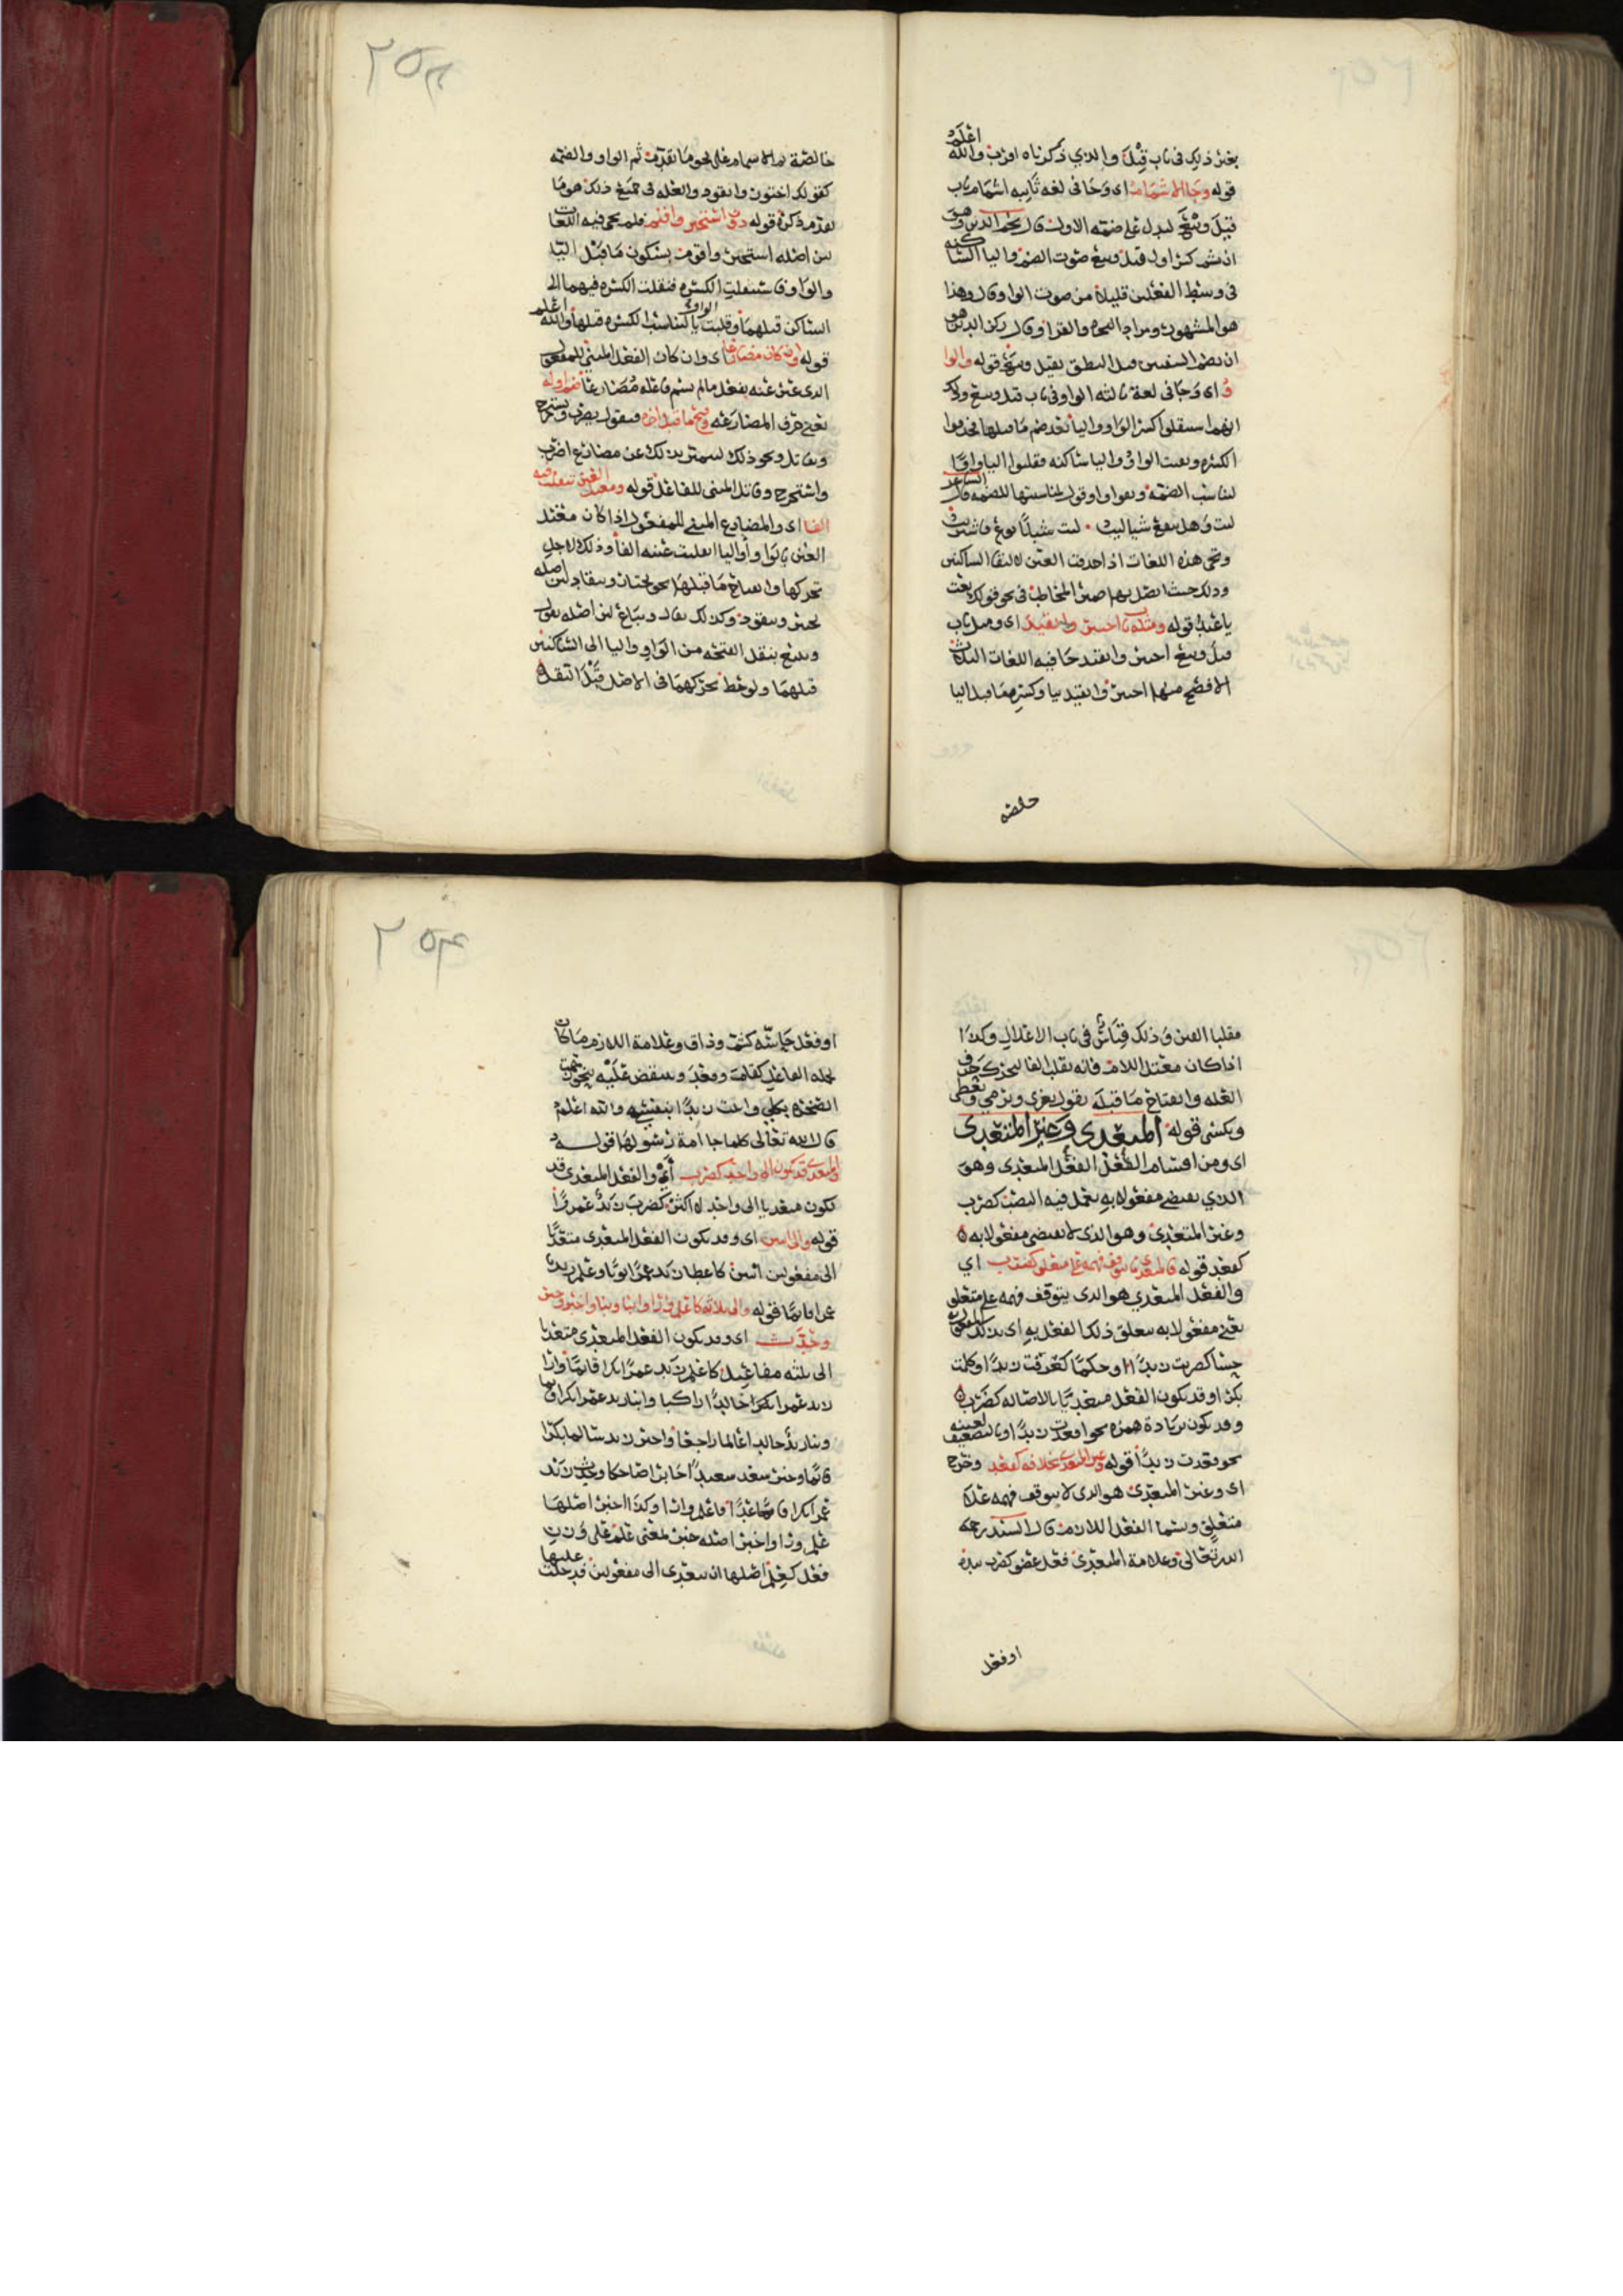 بغير ذلك في باب قيل والذي ذكرناه اقرب والله اعلم
قوله وجا الاشمام اي وجا في لغة ثانيه اشمام باب
قيل وبيع ليدل على ضمه الاول قال نجم الدين وهو
ان تشم كسر اول قيل وبيع صوت الضم واليا الساكنه
في وسط الفعلين قليلا من صوت الواو قال وهذا
هو المشهور ومراد النحاه والقرا وقال ركن الدين هو
ان تضم الشفتين قبل النطق بقيل وبيع قوله والوا
و اي وجا في لغة ثالثه الواو في باب قيل وبيع وذلك
انهم استثقلوا كسر الواو واليا بعد ضم ما قبلها فحذفوا
الكسره وبقيت الواو واليا ساكنه فقلبوا اليا واوًا
لتناسب الضمه وبقوا واو قول لمناسبتها للضمه قال الشاعر
ليت وهل ينفع شيا ليت ٠ ليت شبابًا بوع فاشتريت
وتجي هذه اللغات اذا حذفت العين لالتقا الساكنين
وذلك حيث اتصل بهما ضمير المخاطب في نحو قولك بعت
يا عبد قوله ومثله باب اختير وانقيد اي ومثل باب
قيل وبيع اختير وانقيد جا فيه اللغات الثلاث
الافصح منها اختير وانقيد بيا وكسر ما قبل اليا
خالصه
٢٥٣
خالصة ثم الاشمام على نحو ما تقدم ثم الواو والضمه
كقولك اختور وانقود والعله في جميع ذلك هو ما
تقدم ذكره قوله دون استخير واقيم فلم يجي فيه اللغات
لان اصله استخير واقوم بسكون ما قبل اليا
والواو فاستثقلت الكسره فنقلت الكسره فيهما الى
الساكن قبلهما وقلبت الواو يا لتناسب الكسره قبلها والله اعلم
قوله وان كان مضارعا اي وان كان الفعل المبني للمفعول
الذي عبر عنه بفعل ما لم يسم فاعله مضارعا ضم اوله
يعني حرف المضارعه وفتح ما قبل اخره فيقول يضرب ويستخرج
ويقاتل ونحو ذلك لتميز بذلك عن مضارع اضرب
واستخرج وقاتل المبني للفاعل قوله ومعتل العين تنقلب فيه
الفا اي والمضارع المبني للمفعول اذا كان معتل
العين بالواو او اليا انقلبت عينه الفا وذلك لاجل
تحركها وانفتاح ما قبلها نحو يختار وينقاد لان اصله
يختير وينقود وكذلك يقال ويباع لان اصله يقول
ويبيع بنقل الفتحه من الواو واليا الى الساكنين
قبلهما ولوحظ تحركهما في الاصل قبل النقل
مقلبا العين وذلك قياس في باب الاعلال وكذا
اذا كان معتل اللام فانه تقلب الفا لتحرك حرف
العله وانفتاح ما قبله تقول يغزى ويرمى ويعطى
ويكسى قوله المتعدي وغير المتعدي
اي ومن اقسام الفعل الفعل المتعدي وهو
الذي يقتضي مفعولا به يعمل فيه النصب كضرب
وغير المتعدي وهو الذي لا يقتضي مفعولا به
كقعد قوله فالمتعدي ما يتوقف فهمه على متعلق كضرب اي
والفعل المتعدي هو الذي يتوقف فهمه على متعلق
يعني مفعولا به تعلق ذلك الفعل به اي بذلك المفعول به
حسا كضربت زيدًا او حكمًا كعرفت زيدًا او كلمت
بكرا وقد يكون الفعل متعديًا بالاصاله كضرب
وقد يكون بزيادة همزه نحو اقعدت زيدًا او بالتضعيف لعينه
نحو قعدت زيدًا قوله وغير المتعدي بخلافه كقعد وخرج
اي وغير المتعدي هو الذي لا يتوقف فهمه على
متعلق ويسما الفعل اللازم قال السيد رحمه
الله تعالى وعلامة المتعدي فعل عضو كضرب بيده
او فعل
٢٥٤
او فعل حاسّه كشم وذاق وعلامة اللازم ما كان
لجمله الفاعل كقام وقعد وينقض عليه بنحو
زيدًا بنفسه والله اعلم
قال الله تعالى كلما جا امة رسولها قوله
والمتعدي قد يكون الى واحد كضرب اي والفعل المتعدي قد
يكون متعديا الى واحد لا اكثر كضرب زيد عمروًا
قوله والى اثنين اي وقد يكون الفعل المتعدي متعديًا
الى مفعولين اثنين كاعطا زيد عمرًا ثوبًا وعلم زيد
عمرا قائمًا قوله والى ثلاثه كاعلم وارا وانبا ونبا واخبر وخبر
وحدّث اي وقد يكون الفعل المتعدي متعديا
الى ثلثه مفاعيل كاعلم زيد عمرًا بكرا قائمًا وارا
زيد عمرا بكرا خالدًا راكبا وانبا زيد عمرا بكرا قائما
ونبا زيد خالدا غالما راجعًا واخبر زيد سالما بكرًا
قائمًا وخبر سعد سعيدًا جابرا ضاحكا وحدث زيد
عمرا بكرا قاعدًا فاعلم وارا وكذا اخبر اصلها
علم وراا واخبر اصله خبر بمعنى علم على وزن
فعل كعلم اصلها ان يتعدى الى مفعولين فدخلت عليها